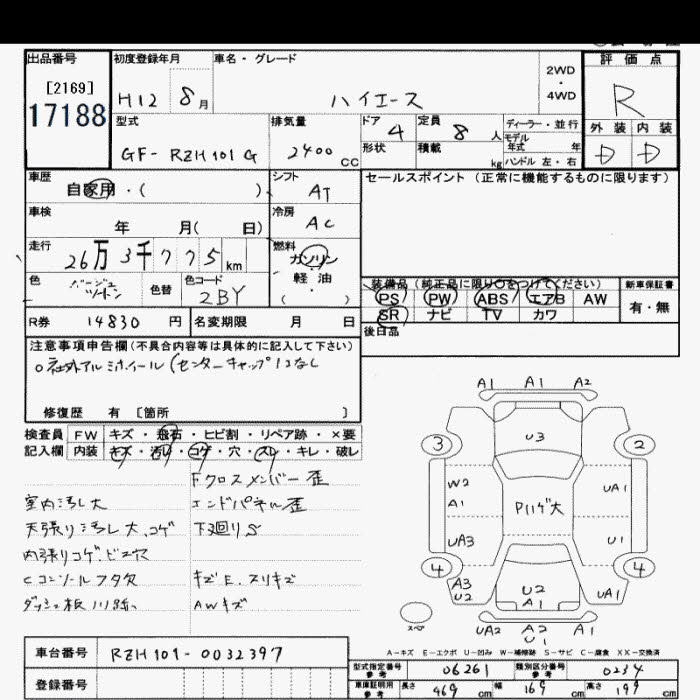 出品番号 初度登録年月 車名・グレード 評価点
[2169]
17188
H12 8月 ハイエース 2WD・4WD R
型式 排気量 ドア 4 定員 8人 ディーラー・並行 外装 内装
GF-RZH101G 2400cc 形状 積載 kg モデル年式 年 ハンドル 左・右 D D
車歴 自家用・( ) シフト AT セールスポイント (正常に機能するものに限ります)
車検 年 月( 日) 冷房 AC
走行 26万3千775km 燃料 ガソリン 軽油 ( ・ )
色 ベージュツートン 色替 色コード 2BY
装備品 (純正品に限り○をつけてください) 新車保証書
PS PW ABS エアB AW 有・無
SR ナビ TV カワ
R券 14830円 名変期限 月 日 後日品
注意事項申告欄 (不具合内容等は具体的に記入して下さい)
○社外アルミホイール(センターキャップ1コなし
修復歴 有 [箇所 ]
検査員 FW キズ・飛石・ヒビ割・リペア跡・×要
記入欄 内装 キズ・汚レ・コゲ・穴・スレ・キレ・破レ
Fクロスメンバー歪
室内汚レ大 エンドパネル歪
天張り汚レ大、コゲ 下廻りS
内張りコゲ、ビス穴
Cコンソールフタ欠 キズE、スリキズ
ダッシュ板 AWキズ
A1 A1 A2
3 U3 2
W2 UA1
A1 Pハゲ大
UA3 U1
4 4
A3 U2 UA1
U2 A1
スペア UA2 A2 A1
U1
A-キズ E-エクボ U-凹み W-補修跡 S-サビ C-腐食 XX-交換済
車台番号 RZH101-0032397
型式指定番号 参考 06261 類別区分番号 参考 0234
登録番号
車庫証明用 参考 長さ 469cm 幅 169cm 高さ 197cm